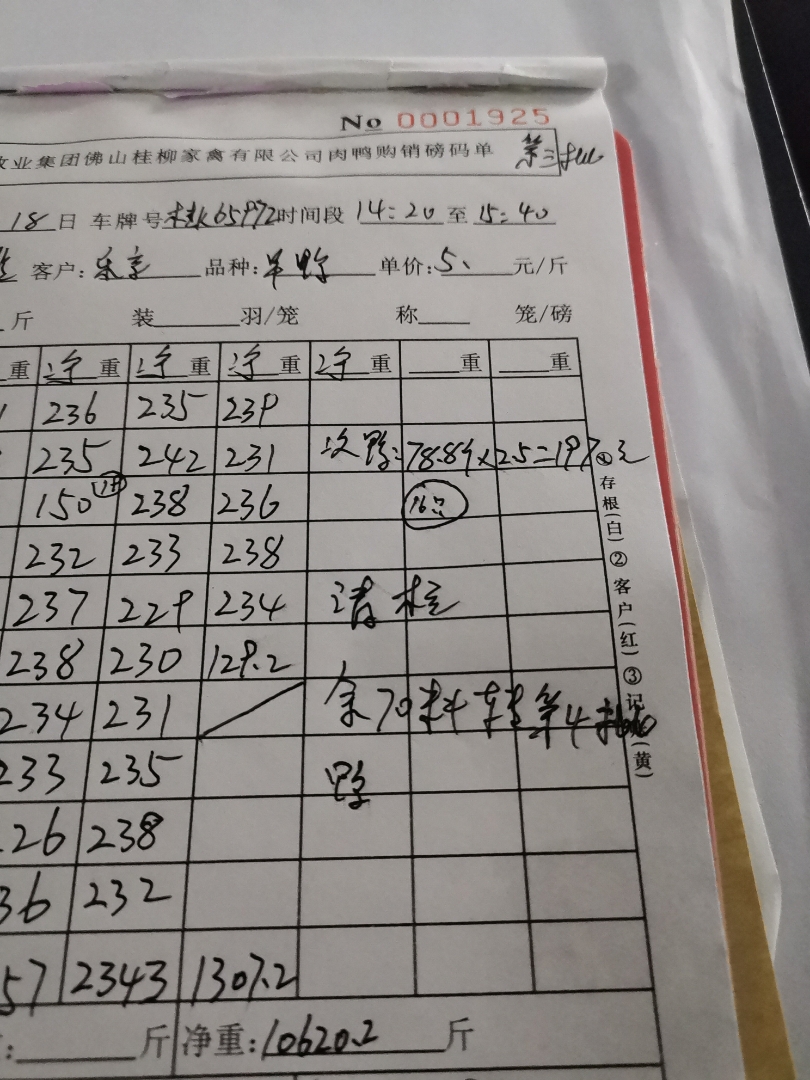 No 0001925
牧业集团佛山桂柳家禽有限公司肉鸭购销磅码单 第三批
18日 车牌号 65972 时间段 14:20 至 15:40
客户: 品种: 单价: 5. 元/斤
斤 装 羽/笼 称 笼/磅
重 净重 净重 净重 净重 重 重
236 235 239
235 242 231 次鸭: 78.8斤×2.5=197元
150 238 236 16只
232 233 238
237 229 234 请核
238 230 129.2
234 231 余70料转第4批
233 235 鸭
26 238
36 232
57 2343 1307.2
斤 净重: 10620.2 斤
①存根(白)②客户(红)③记(黄)